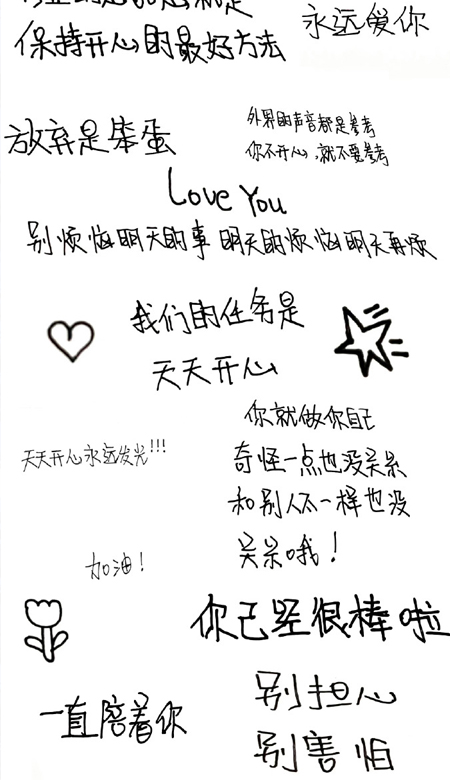 保持开心的最好方法
永远爱你
放弃是笨蛋
外界的声音都是参考
你不开心,就不要参考
Love You
别烦恼明天的事 明天的烦恼明天再烦
我们的任务是
天天开心
你就做你自己
天天开心永远发光!!!
奇怪一点也没关系
和别人不一样也没
关系哦!
加油!
你已经很棒啦
别担心
一直陪着你
别害怕